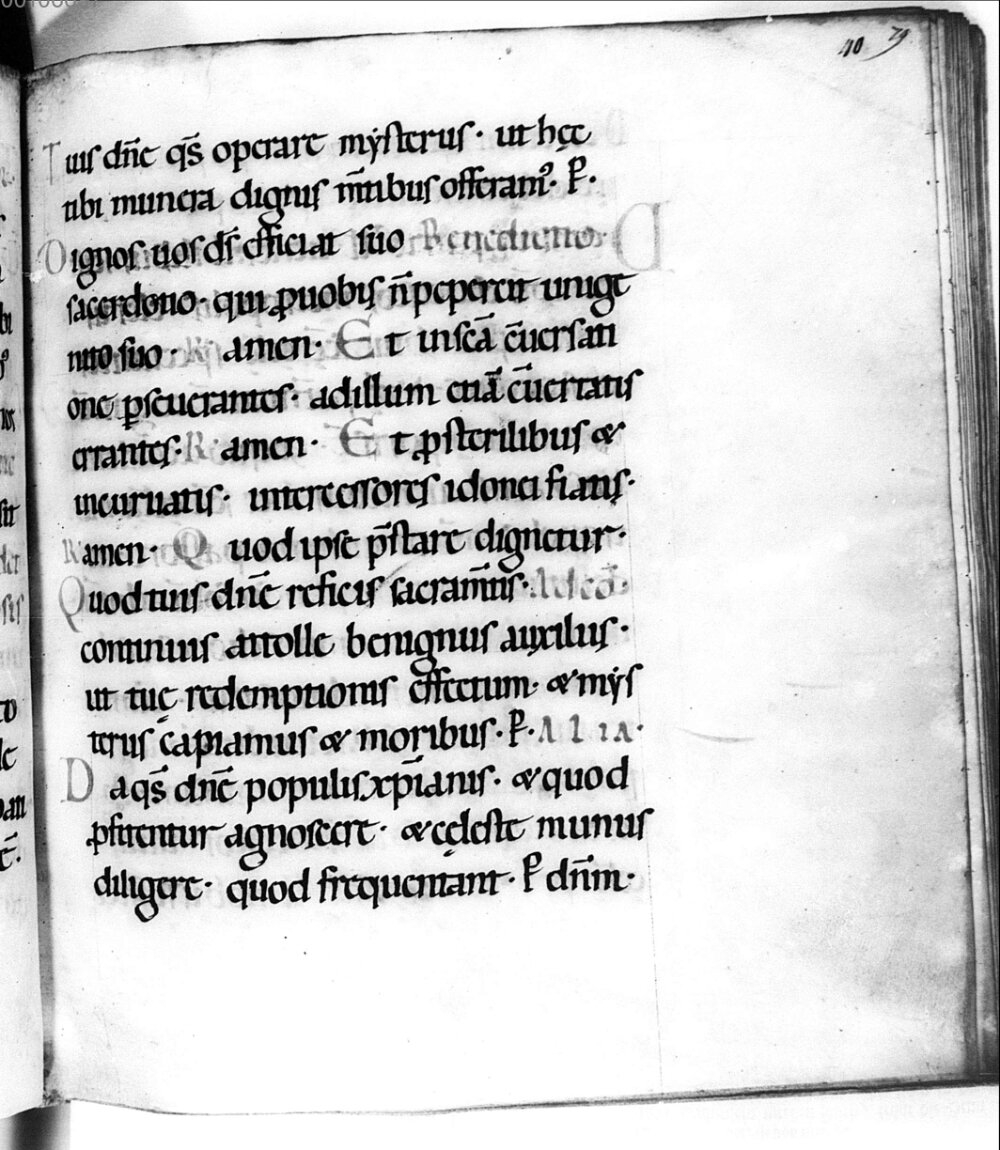 40 79
Tuis dn̄e qs̄ operare mẏsteriis· ut hęc
tibi munera dignis m̄tibus offeram᾽· P̄·
Dignos uos ds̄ efficiat suo Benedictio·
sacerdotio· qui ꝓ uobis n̄ pepercit unige
nito suo· R̄ amen· Et in sc̄a c̄uersati
one ꝑseuerantes· ad illum etiā c̄uertatis
errantes· R̄ amen· Et ꝓ sterilibus &
incuruatis· intercessores idonei fiatis·
R̄ amen· Quod ipse p̄stare dignetur·
Quos tuis dn̄e reficis sacram̄tis· Ad cō·
continuis attolle benignus auxiliis·
ut tuę redemptionis effectum· & mẏs
teriis capiamus & moribus· P̄· ALIA·
Da qs̄ dn̄e populis xp̄ianis· & quod
ꝓfitentur agnoscere· & cęleste munus
diligere· quod frequentant· P̄ dn̄m·